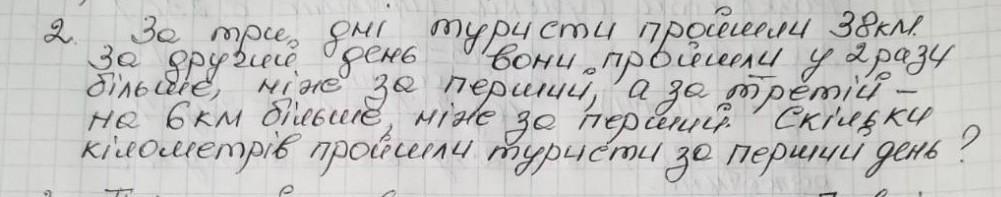 2. За три дні туристи пройшли 38км.
За другий день вони пройшли у 2 разу
більше, ніж за перший, а за третій -
на 6 км більше, ніж за перший. Скільки
кілометрів пройшли туристи за перший день?